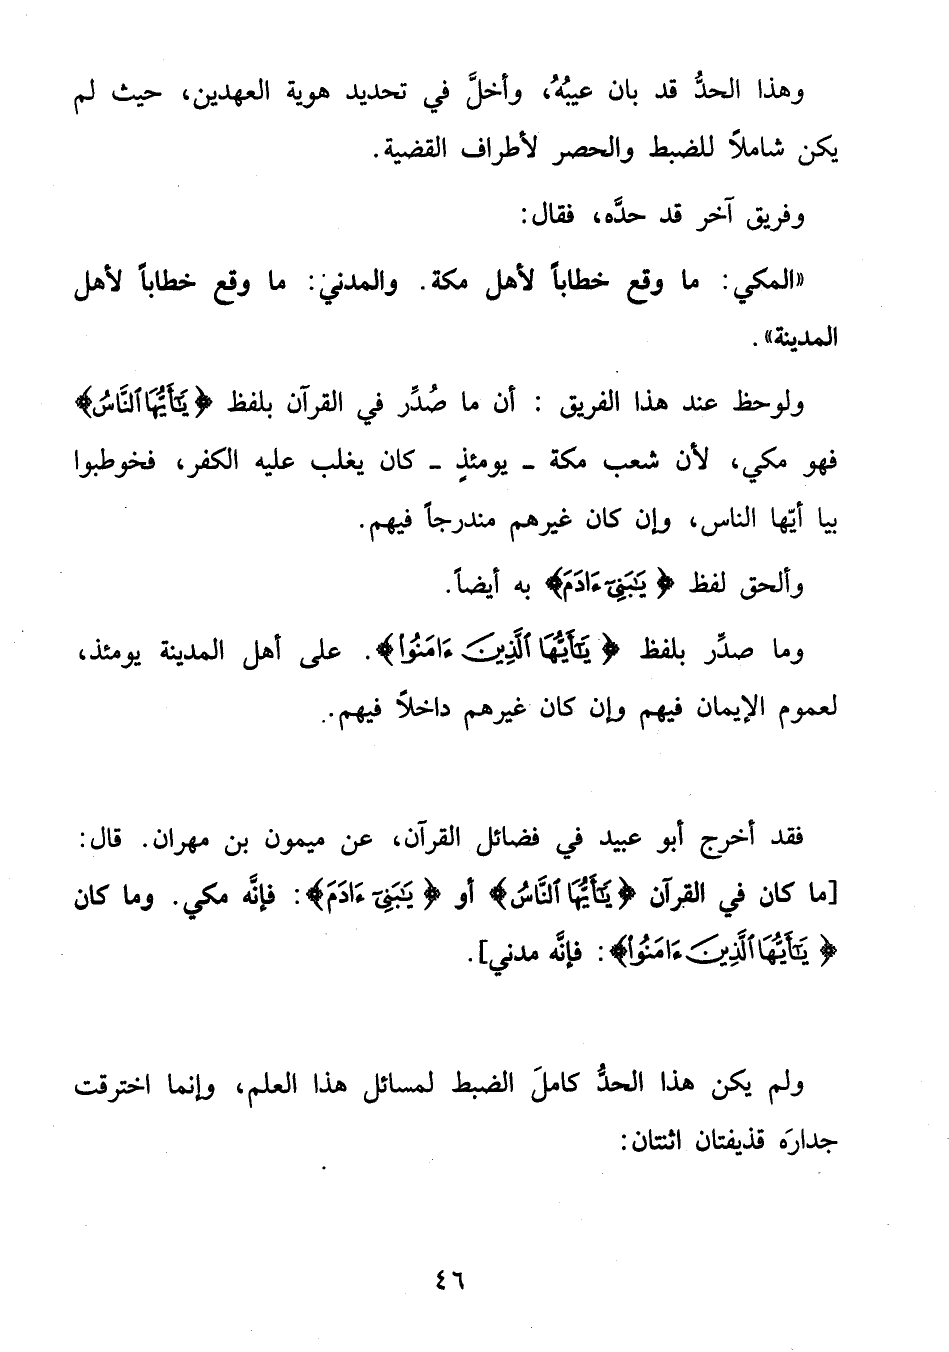 وهذا الحدُّ قد بان عيبُهُ، وأخلَّ في تحديد هوية العهدين، حيث لم
يكن شاملاً للضبط والحصر لأطراف القضية.
وفريق آخر قد حدَّه، فقال:
«المكي: ما وقع خطاباً لأهل مكة. والمدني: ما وقع خطاباً لأهل
المدينة».
ولوحظ عند هذا الفريق : أن ما صُدِّر في القرآن بلفظ ﴿يَٰٓأَيُّهَا ٱلنَّاسُ﴾
فهو مكي، لأن شعب مكة ـ يومئذٍ ـ كان يغلب عليه الكفر، فخوطبوا
بيا أيّها الناس، وإن كان غيرهم مندرجاً فيهم.
وألحق لفظ ﴿يَٰبَنِيٓ ءَادَمَ﴾ به أيضاً.
وما صدِّر بلفظ ﴿يَٰٓأَيُّهَا ٱلَّذِينَ ءَامَنُوا۟﴾. على أهل المدينة يومئذ،
لعموم الإيمان فيهم وإن كان غيرهم داخلاً فيهم..
فقد أخرج أبو عبيد في فضائل القرآن، عن ميمون بن مهران. قال:
[ما كان في القرآن ﴿يَٰٓأَيُّهَا ٱلنَّاسُ﴾ أو ﴿يَٰبَنِيٓ ءَادَمَ﴾: فإنَّه مكي. وما كان
﴿يَٰٓأَيُّهَا ٱلَّذِينَ ءَامَنُوٓا۟﴾: فإنَّه مدني].
ولم يكن هذا الحدُّ كاملَ الضبط لمسائل هذا العلم، وإنما اخترقت
جدارَه قذيفتان اثنتان:
٤٦